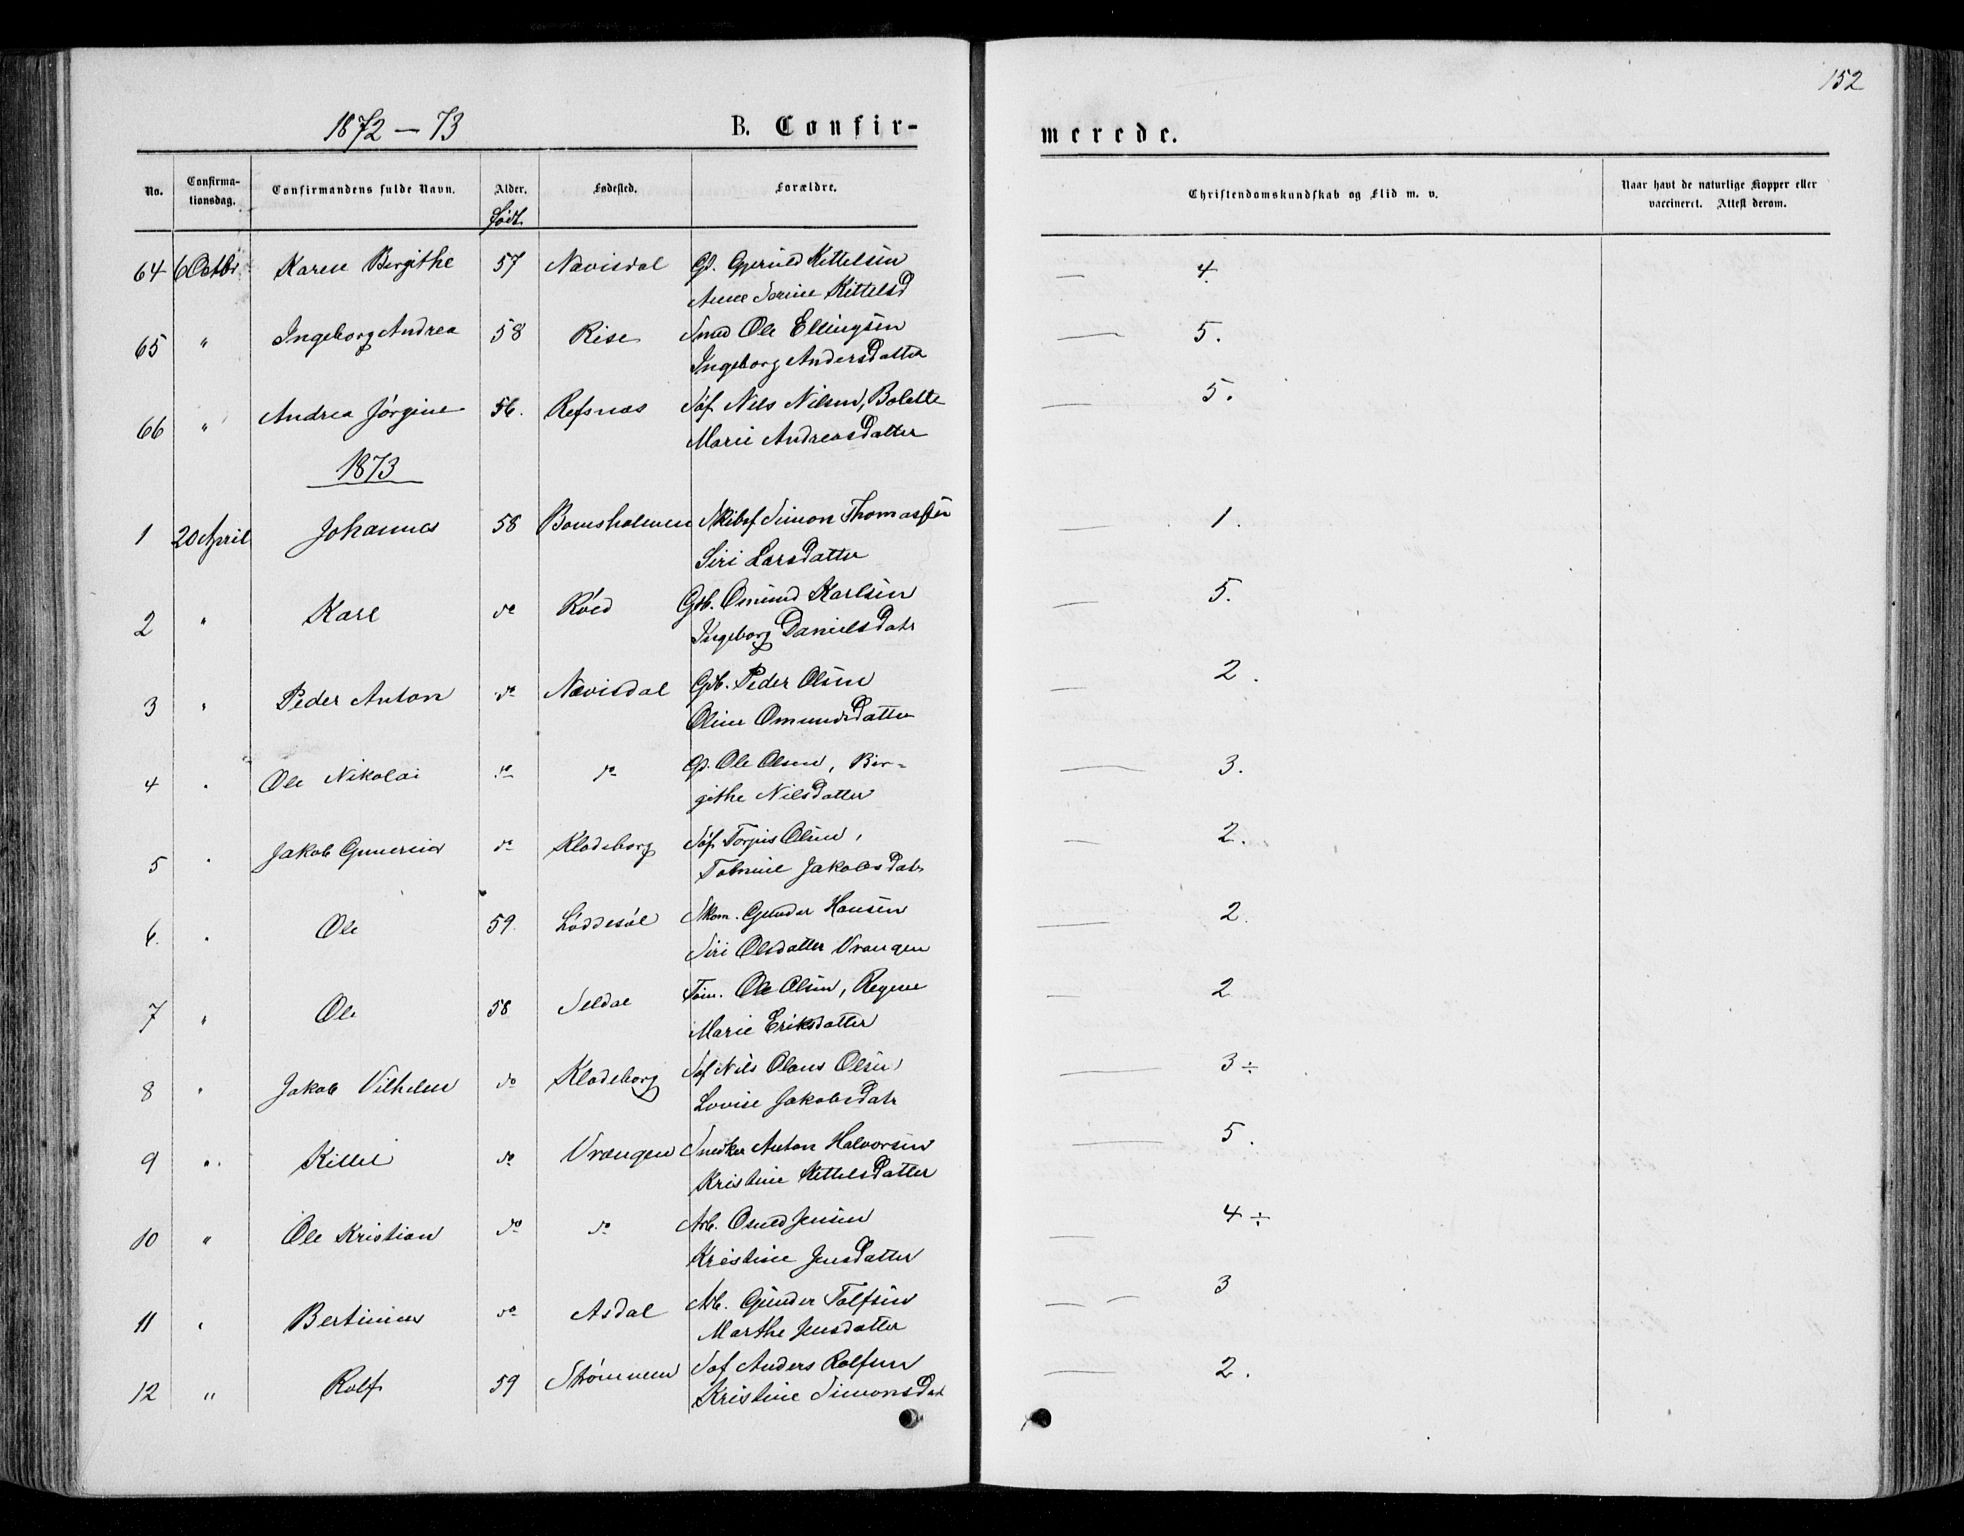 152
1872 – 73
B. Confir-
merede.
No.
Confirma-
tionsdag.
Confirmandens fulde Navn.
Alder.
født
Fødested.
Forældre.
Christendomskundskab og Flid m. v.
Naar havt de naturlige Kopper eller
vaccineret. Attest derom.
64 6 Octbr. Karen Birgithe 57 Nævisdal Gd. Gjeruld Kittelsen — 4.
Anne Serine Kittelsd
65 " Ingeborg Andrea 58 Rise Smed Ole Ellingsen — 5.
Ingeborg Andersdatter
66 " Andrea Jørgine 56. Refsnæs Søf. Nils Nilsen, Bolette — 5.
Marie Andreasdatter
1873
1 20 April Johannes 58 Bomsholmen Skibsf Simon Thomassen — 1.
Siri Larsdatter
2 " Karl do Røed Gdb. Omund Karlsen — 5.
Ingeborg Danielsdatr
3 " Peder Anton do Nævisdal Gdb. Peder Olsen — 2.
Oline Omundsdatter
4 " Ole Nikolai do do Gd. Ole Olsen, Bir- — 3.
githe Nilsdatter
5 " Jakob do Klodeborg Søf. Torjus Olsen, — 2.
Tobine Jakobsdatr
6. " Ole 59. Løddesøl Skom. Gunder Hansen — 2.
Siri Olsdatter Vrængen
7 " Ole 58 Seldal Tøm. Ole Olsen, Regine — 2
Marie Eriksdatter
8 " Jakob Vilhelm do Klodeborg Søf Nils Olaus Olsen — 3 ÷
Lovise Jakobsdatr
9 " Kittel do Vrængen Snedker Anton Halvorsen — 5.
Kristine Kittelsdatter
10 " Ole Kristian do do Arb. Osuld Jensen — 4 ÷
Kristine Jensdatter
11 " Bertinius do Asdal Arb. Gunder Tolfsen — 3
Marthe Jensdatter
12 " Rolf 59 Strømmen Søf Anders Rolfsen — 2.
Kristine Simonsdat